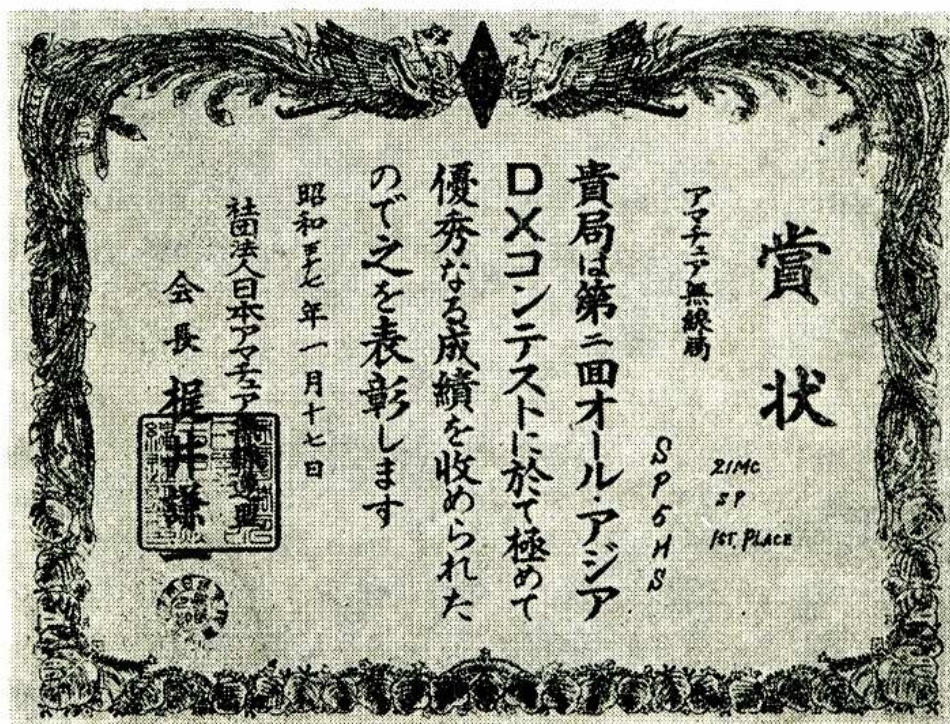 賞状
21MC
SP
1ST. PLACE
アマチュア無線局
SP5HS
貴局は第二回オール・アジア
DXコンテストに於て極めて
優秀なる成績を収められた
ので之を表彰します
昭和三十七年一月十七日
社団法人日本アマチュア無線連盟
会長 梶井謙一